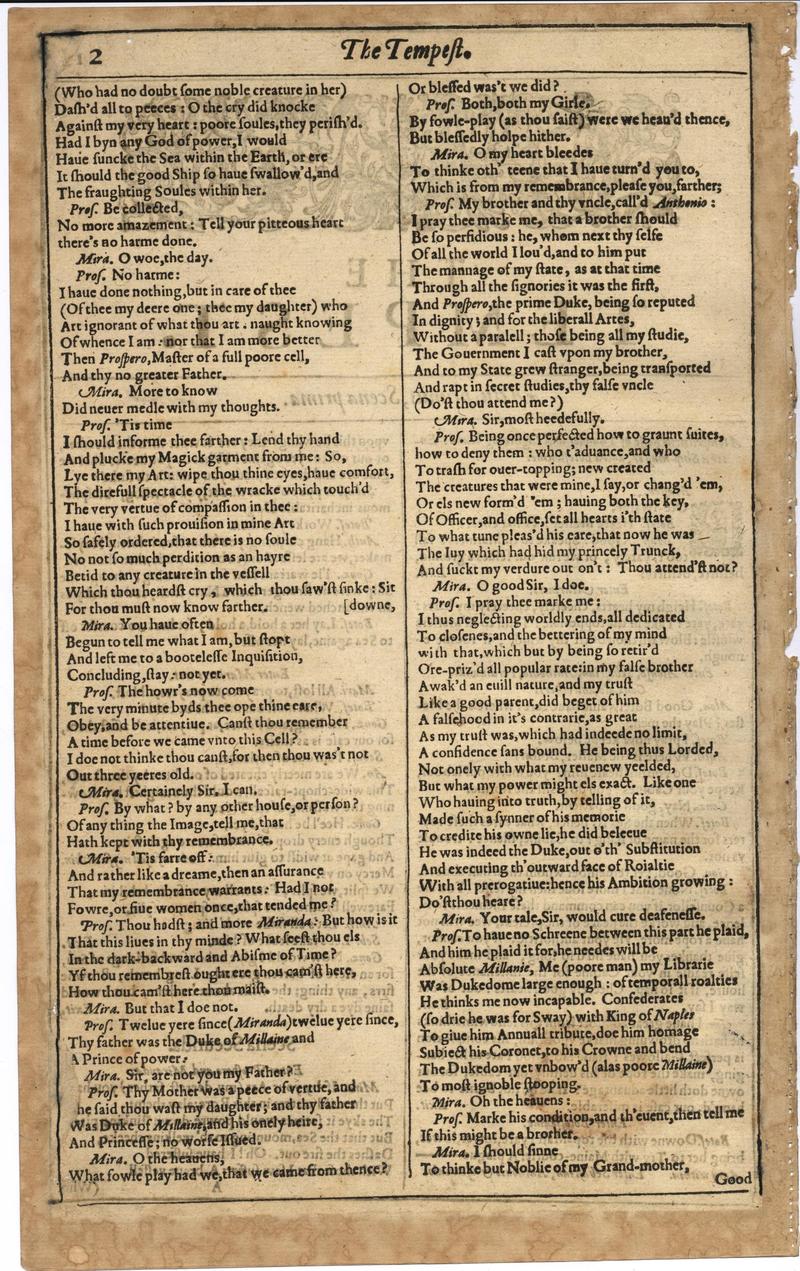 2
The Tempeſt.
(Who had no doubt ſome noble creature in her)
Daſh'd all to peeces : O the cry did knocke
Againſt my very heart : poore ſoules, they periſh'd.
Had I byn any God of power, I would
Haue ſuncke the Sea within the Earth, or ere
It ſhould the good Ship ſo haue ſwallow'd, and
The fraughting Soules within her.
Proſ. Be collected,
No more amazement : Tell your pitteous heart
there's no harme done.
Mira. O woe, the day.
Proſ. No harme :
I haue done nothing, but in care of thee
(Of thee my deere one; thee my daughter) who
Art ignorant of what thou art . naught knowing
Of whence I am : nor that I am more better
Then Proſpero, Maſter of a full poore cell,
And thy no greater Father.
Mira. More to know
Did neuer medle with my thoughts.
Proſ. 'Tis time
I ſhould informe thee farther : Lend thy hand
And plucke my Magick garment from me : So,
Lye there my Art : wipe thou thine eyes, haue comfort,
The direfull ſpectacle of the wracke which touch'd
The very vertue of compaſſion in thee :
I haue with ſuch prouiſion in mine Art
So ſafely ordered, that there is no ſoule
No not ſo much perdition as an hayre
Betid to any creature in the veſſell
Which thou heardſt cry, which thou ſaw'ſt ſinke : Sit
For thou muſt now know farther. [downe,
Mira. You haue often
Begun to tell me what I am, but ſtopt
And left me to a booteleſſe Inquiſition,
Concluding, ſtay : not yet.
Proſ. The howr's now come
The very minute byds thee ope thine eare,
Obey, and be attentiue. Canſt thou remember
A time before we came vnto this Cell?
I doe not thinke thou canſt, for then thou was't not
Out three yeeres old.
Mira. Certainely Sir, I can.
Proſ. By what? by any other houſe, or perſon?
Of any thing the Image, tell me, that
Hath kept with thy remembrance.
Mira. 'Tis farre off :
And rather like a dreame, then an aſſurance
That my remembrance warrants : Had I not
Fowre, or fiue women once, that tended me?
Proſ. Thou hadſt; and more Miranda : But how is it
That this liues in thy minde? What ſeeſt thou els
In the dark-backward and Abiſme of Time?
Yf thou remembreſt ought ere thou cam'ſt here,
How thou cam'ſt here thou maiſt.
Mira. But that I doe not.
Proſ. Twelue yere ſince (Miranda) twelue yere ſince,
Thy father was the Duke of Millaine and
A Prince of power :
Mira. Sir, are not you my Father?
Proſ. Thy Mother was a peece of vertue, and
he ſaid thou waſt my daughter; and thy father
Was Duke of Millaine, and his onely heire,
And Princeſſe; no worſe Iſſued.
Mira. O the heauens,
What fowle play had we, that we came from thence?
Or bleſſed was't we did?
Proſ. Both, both my Girle.
By fowle-play (as thou ſaiſt) were we heau'd thence,
But bleſſedly holpe hither.
Mira. O my heart bleedes
To thinke oth' teene that I haue turn'd you to,
Which is from my remembrance, pleaſe you, farther;
Proſ. My brother and thy vncle, call'd Anthonio :
I pray thee marke me, that a brother ſhould
Be ſo perfidious : he, whom next thy ſelfe
Of all the world I lou'd, and to him put
The mannage of my ſtate, as at that time
Through all the ſignories it was the firſt,
And Proſpero, the prime Duke, being ſo reputed
In dignity; and for the liberall Artes,
Without a paralell; thoſe being all my ſtudie,
The Gouernment I caſt vpon my brother,
And to my State grew ſtranger, being tranſported
And rapt in ſecret ſtudies, thy falſe vncle
(Do'ſt thou attend me?)
Mira. Sir, moſt heedefully.
Proſ. Being once perfected how to graunt ſuites,
how to deny them : who t'aduance, and who
To traſh for ouer-topping; new created
The creatures that were mine, I ſay, or chang'd 'em,
Or els new form'd 'em; hauing both the key,
Of Officer, and office, ſet all hearts i'th ſtate
To what tune pleas'd his eare, that now he was
The Iuy which had hid my princely Trunck,
And ſuckt my verdure out on't : Thou attend'ſt not?
Mira. O good Sir, I doe.
Proſ. I pray thee marke me :
I thus neglecting worldly ends, all dedicated
To cloſenes, and the bettering of my mind
with that, which but by being ſo retir'd
Ore-priz'd all popular rate : in my falſe brother
Awak'd an euill nature, and my truſt
Like a good parent, did beget of him
A falſehood in it's contrarie, as great
As my truſt was, which had indeede no limit,
A confidence ſans bound. He being thus Lorded,
Not onely with what my reuenew yeelded,
But what my power might els exact. Like one
Who hauing into truth, by telling of it,
Made ſuch a ſynner of his memorie
To credite his owne lie, he did beleeue
He was indeed the Duke, out o'th' Subſtitution
And executing th'outward face of Roialtie
With all prerogatiue : hence his Ambition growing :
Do'ſt thou heare?
Mira. Your tale, Sir, would cure deafeneſſe.
Proſ. To haue no Schreene between this part he plaid,
And him he plaid it for, he needes will be
Abſolute Millanie, Me (poore man) my Librarie
Was Dukedome large enough : of temporall roalties
He thinks me now incapable. Confederates
(ſo drie he was for Sway) with King of Naples
To giue him Annuall tribute, doe him homage
Subiect his Coronet, to his Crowne and bend
The Dukedom yet vnbow'd (alas poore Millaine)
To moſt ignoble ſtooping.
Mira. Oh the heauens :
Proſ. Marke his condition, and th'euent, then tell me
If this might be a brother.
Mira. I ſhould ſinne
To thinke but Noblie of my Grand-mother,
Good